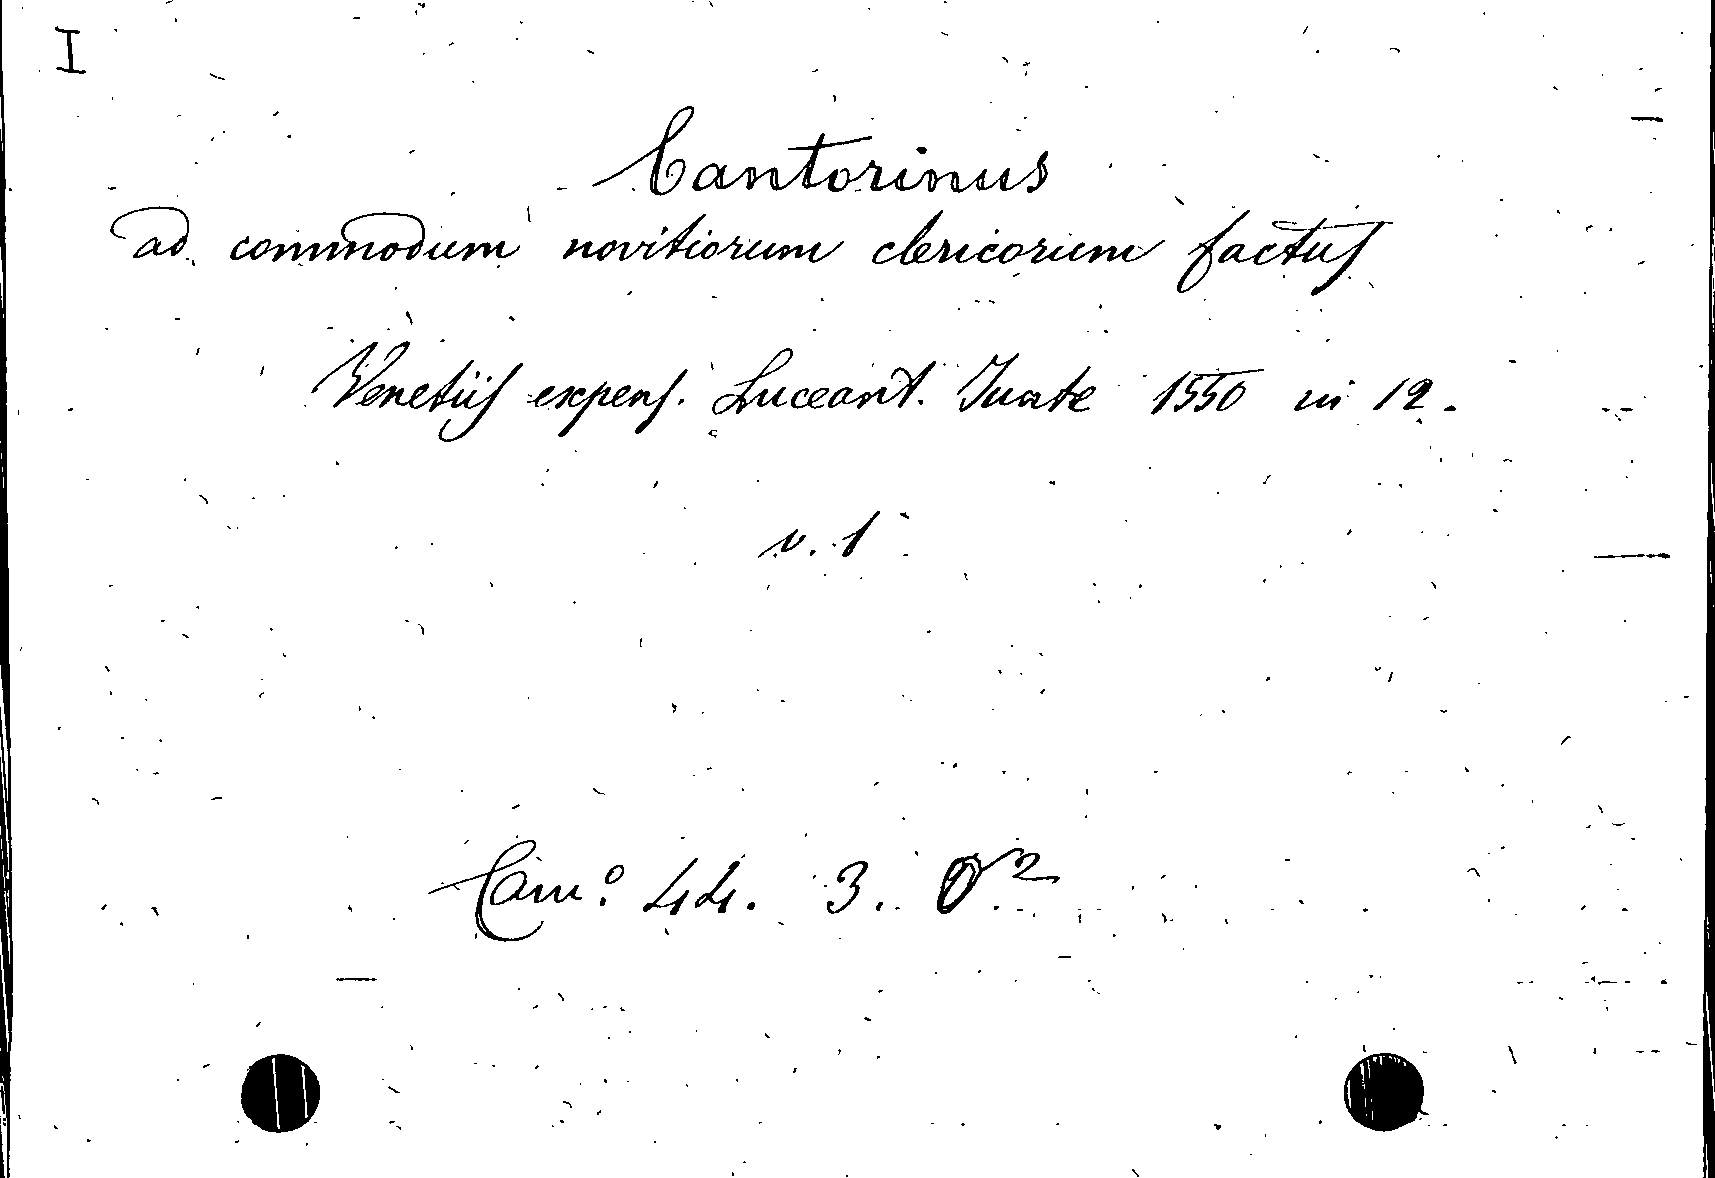 I
Cantorinus
ad commodum novitiorum clericorum factus
Venetiis expens. Luceant. Juate 1550 in 12.
v. 1
Cam.º 44. 3. O²